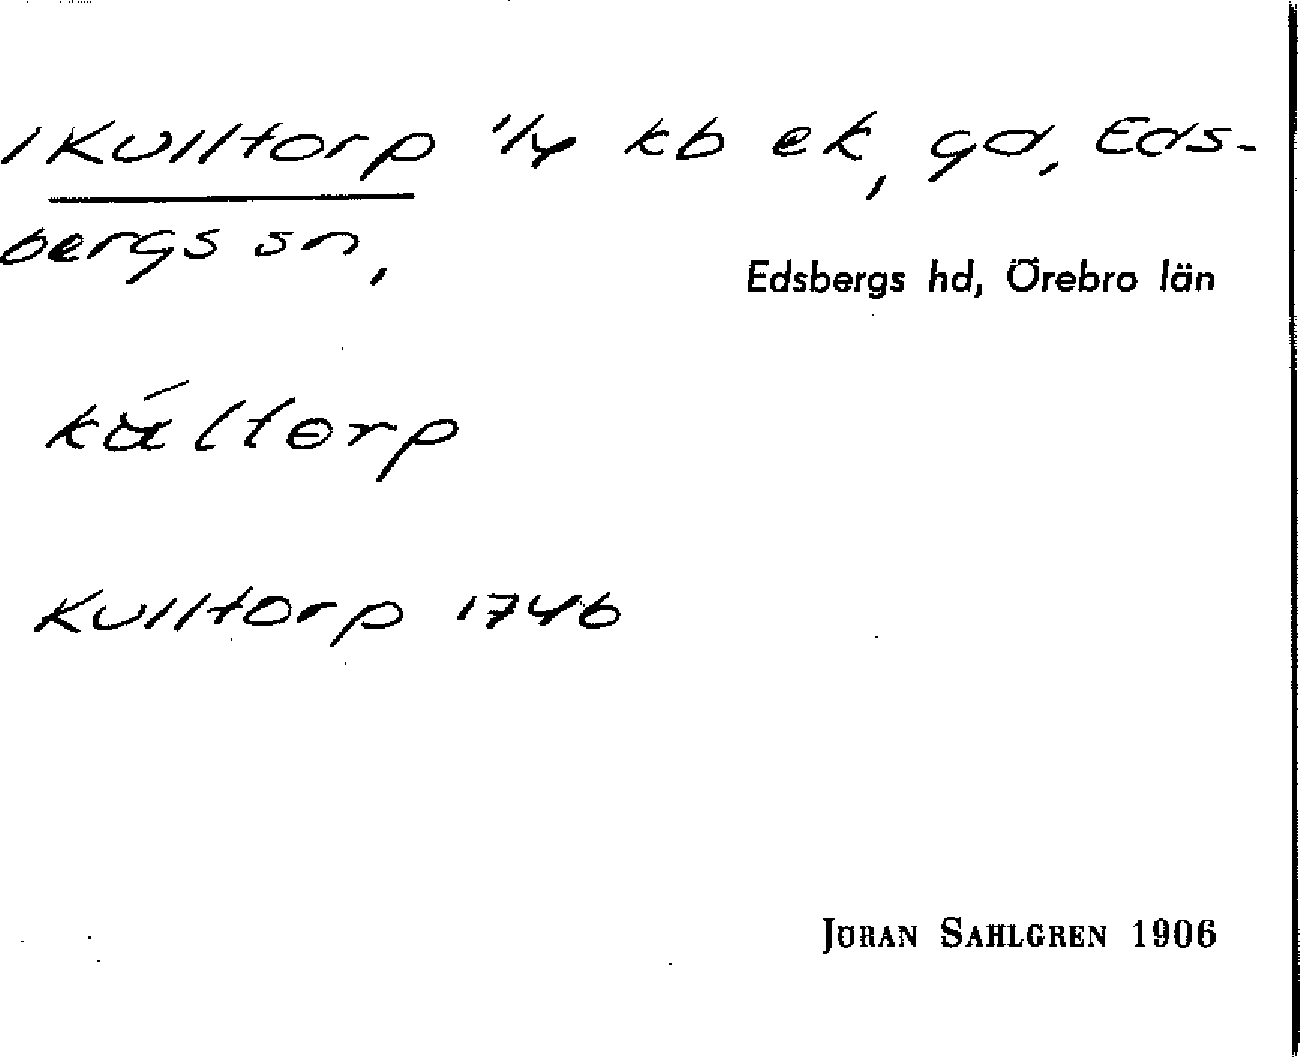 /Kulltorp 1/4 kb ek, gd, Eds-
bergs sn,
Edsbergs hd, Örebro län
kúltorp
Kulltorp 1746
JÖRAN SAHLGREN 1906